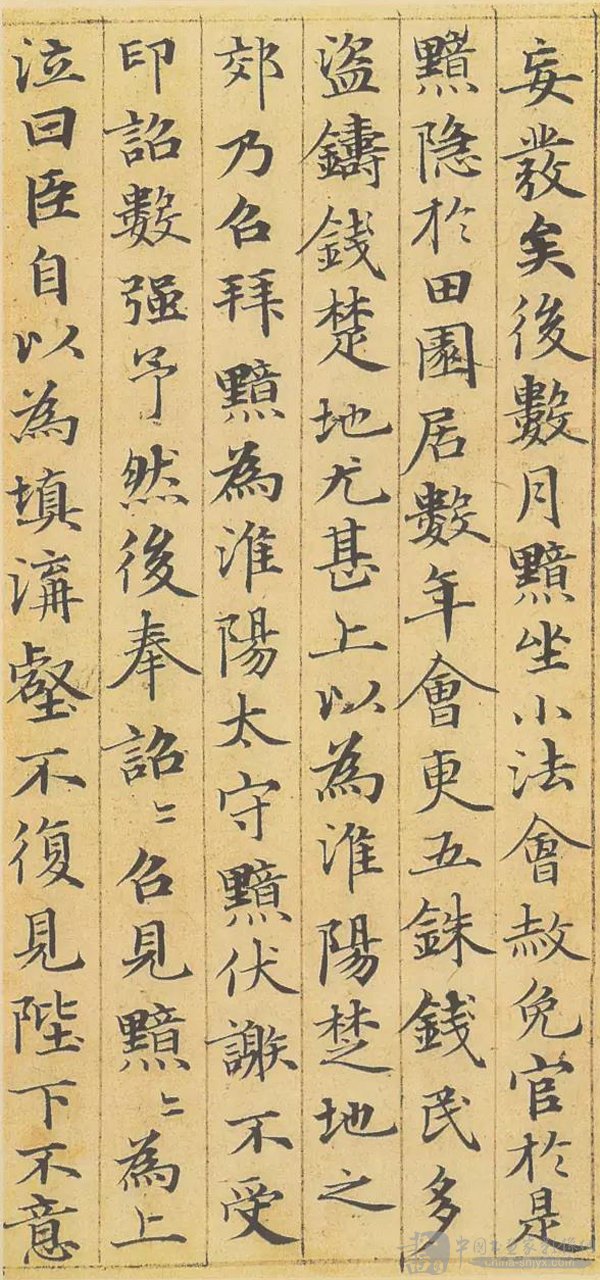 妄發矣後數月黯坐小法會赦免官於是
黯隱於田園居數年會更五銖錢民多
盜鑄錢楚地尤甚上以為淮陽楚地之
郊乃召拜黯為淮陽太守黯伏謝不受
印詔數強予然後奉詔〻召見黯〻為上
泣曰臣自以為填溝壑不復見陛下不意
中国书画家教修网
china-shjyx.com